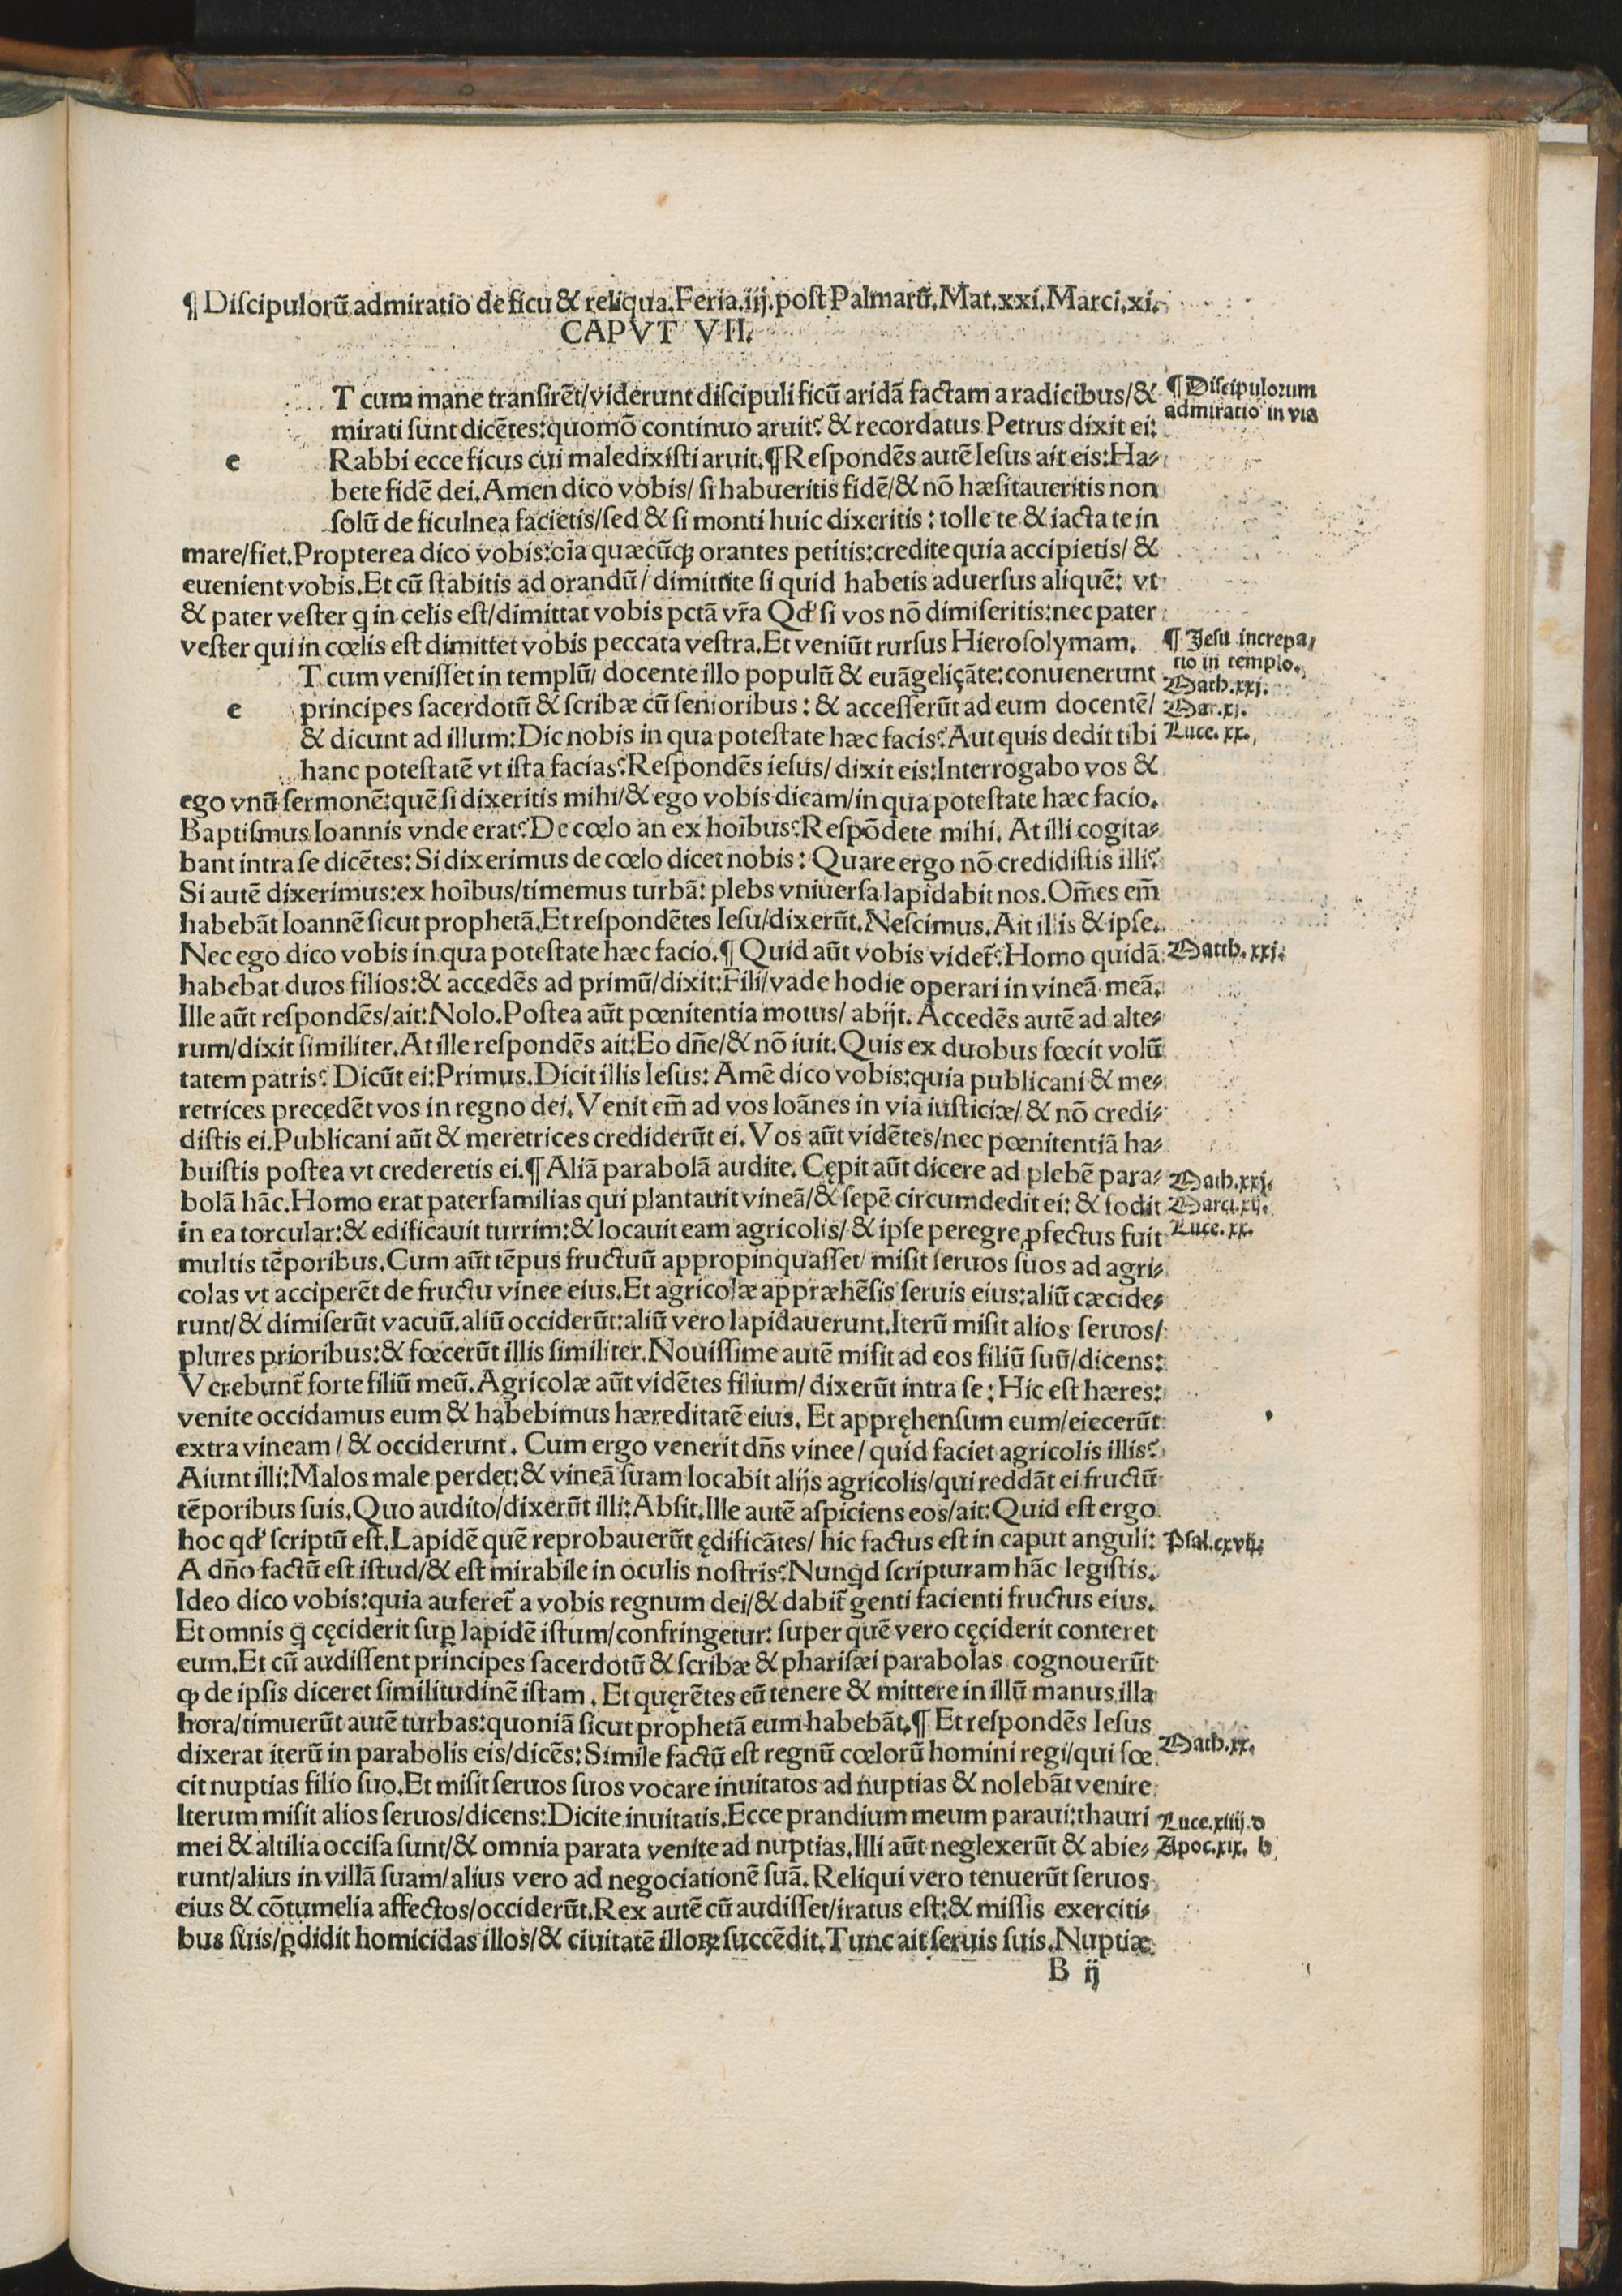 ¶ Diſcipulorū admiratio de ficu & reliqua. Feria. iij. poſt Palmarū. Mat. xxi. Marci. xi.
CAPVT VII.
T cum mane tranſirēt/ viderunt diſcipuli ficū aridā factam a radicibus/ &
mirati ſunt dicētes: quomō continuo aruit? & recordatus Petrus dixit ei:
e
Rabbi ecce ficus cui maledixiſti aruit. ¶ Reſpondēs autē Ieſus ait eis: Ha⸗
bete fidē dei. Amen dico vobis/ ſi habueritis fidē/ & nō hæſitaueritis non
ſolū de ficulnea facietis/ ſed & ſi monti huic dixeritis: tolle te & iacta te in
mare/ fiet. Propterea dico vobis: oīa quæcūqȝ orantes petitis: credite quia accipietis/ &
euenient vobis. Et cū ſtabitis ad orandū/ dimittite ſi quid habetis aduerſus aliquē: vt
& pater veſter q̄ in celis eſt/ dimittat vobis pctā vr̄a Qd' ſi vos nō dimiſeritis: nec pater
veſter qui in cœlis eſt dimittet vobis peccata veſtra. Et veniūt rurſus Hieroſolymam.
T cum veniſſet in templū/ docente illo populū & euāgeliçāte: conuenerunt
e
principes ſacerdotū & ſcribæ cū ſenioribus: & acceſſerūt ad eum docentē/
& dicunt ad illum: Dic nobis in qua poteſtate hæc facis? Aut quis dedit tibi
hanc poteſtatē vt iſta facias? Reſpondēs ieſus/ dixit eis: Interrogabo vos &
ego vnū ſermonē: quē ſi dixeritis mihi/ & ego vobis dicam/ in qua poteſtate hæc facio.
Baptiſmus Ioannis vnde erat? De cœlo an ex hoībus? Reſpōdete mihi. At illi cogita⸗
bant intra ſe dicētes: Si dixerimus de cœlo dicet nobis: Quare ergo nō credidiſtis illi?
Si autē dixerimus: ex hoībus/ timemus turbā: plebs vniuerſa lapidabit nos. Om̄es em̄
habebāt Ioannē ſicut prophetā. Et reſpondētes Ieſu/ dixerūt. Neſcimus. Ait illis & ipſe.
Nec ego dico vobis in qua poteſtate hæc facio. ¶ Quid aūt vobis videt̄? Homo quidā
habebat duos filios: & accedēs ad primū/ dixit: Fili/ vade hodie operari in vineā meā.
Ille aūt reſpondēs/ ait: Nolo. Poſtea aūt pœnitentia motus/ abijt. Accedēs autē ad alte⸗
rum/ dixit ſimiliter. At ille reſpondēs ait: Eo dn̄e/ & nō iuit. Quis ex duobus fœcit volū
tatem patris? Dicūt ei: Primus. Dicit illis Ieſus: Amē dico vobis: quia publicani & me⸗
retrices precedēt vos in regno dei. Venit em̄ ad vos Ioānes in via iuſticiæ/ & nō credi⸗
diſtis ei. Publicani aūt & meretrices crediderūt ei. Vos aūt vidētes/ nec pœnitentiā ha⸗
buiſtis poſtea vt crederetis ei. ¶ Aliā parabolā audite. Cępit aūt dicere ad plebē para⸗
bolā hāc. Homo erat paterfamilias qui plantauit vineā/ & ſepē circumdedit ei: & fodit
in ea torcular: & edificauit turrim: & locauit eam agricolis/ & ipſe peregre ꝓfectus fuit
multis tēporibus. Cum aūt tēpus fructuū appropinquaſſet/ miſit ſeruos ſuos ad agri⸗
colas vt acciperēt de fructu vinee eius. Et agricolæ appræhēſis ſeruis eius: aliū cæcide⸗
runt/ & dimiſerūt vacuū. aliū occiderūt: aliū vero lapidauerunt. Iterū miſit alios ſeruos/
plures prioribus: & fœcerūt illis ſimiliter. Nouiſſime autē miſit ad eos filiū ſuū/ dicens:
Verebunt̄ forte filiū meū. Agricolæ aūt vidētes filium/ dixerūt intra ſe: Hic eſt hæres:
venite occidamus eum & habebimus hæreditatē eius. Et appręhenſum eum/ eiecerūt
extra vineam/ & occiderunt. Cum ergo venerit dn̄s vinee/ quid faciet agricolis illis?
Aiunt illi: Malos male perdet: & vineā ſuam locabit alijs agricolis/ qui reddāt ei fructū
tēporibus ſuis. Quo audito/ dixerūt illi: Abſit. Ille autē aſpiciens eos/ ait: Quid eſt ergo
hoc qd' ſcriptū eſt. Lapidē quē reprobauerūt ędificātes/ hic factus eſt in caput anguli:
A dn̄o factū eſt iſtud/ & eſt mirabile in oculis noſtris? Nunq̄d ſcripturam hāc legiſtis.
Ideo dico vobis: quia auferet̄ a vobis regnum dei/ & dabit̄ genti facienti fructus eius.
Et omnis q̄ cęciderit ſuꝑ lapidē iſtum/ confringetur: ſuper quē vero cęciderit conteret
eum. Et cū audiſſent principes ſacerdotū & ſcribæ & phariſæi parabolas cognouerūt
qꝫ de ipſis diceret ſimilitudinē iſtam. Et quęrētes eū tenere & mittere in illū manus illa
hora/ timuerūt autē turbas: quoniā ſicut prophetā eum habebāt. ¶ Et reſpondēs Ieſus
dixerat iterū in parabolis eis/ dicēs: Simile factū eſt regnū cœlorū homini regi/ qui fœ
cit nuptias filio ſuo. Et miſit ſeruos ſuos vocare inuitatos ad nuptias & nolebāt venire
Iterum miſit alios ſeruos/ dicens: Dicite inuitatis. Ecce prandium meum paraui: thauri
mei & altilia occiſa ſunt/ & omnia parata venite ad nuptias. Illi aūt neglexerūt & abie⸗
runt/ alius in villā ſuam/ alius vero ad negociationē ſuā. Reliqui vero tenuerūt ſeruos
eius & cōtumelia affectos/ occiderūt. Rex autē cū audiſſet/ iratus eſt: & miſſis exerciti⸗
bus ſuis/ ꝑdidit homicidas illos/ & ciuitatē illoꝝ ſuccēdit. Tunc ait ſeruis ſuis. Nuptiæ
B ij
¶ Diſcipulorum
admiratio in via
¶ Jeſu increpa⸗
tio in templo.
Math. xxj.
Mar. xj.
Luce. xx.
Matth. xxj.
Math. xxj.
Marci. xij.
Luce. xx.
Pſal. cxvij.
Math. xx.
Luce. xiiij. d
Apoc. xix. b